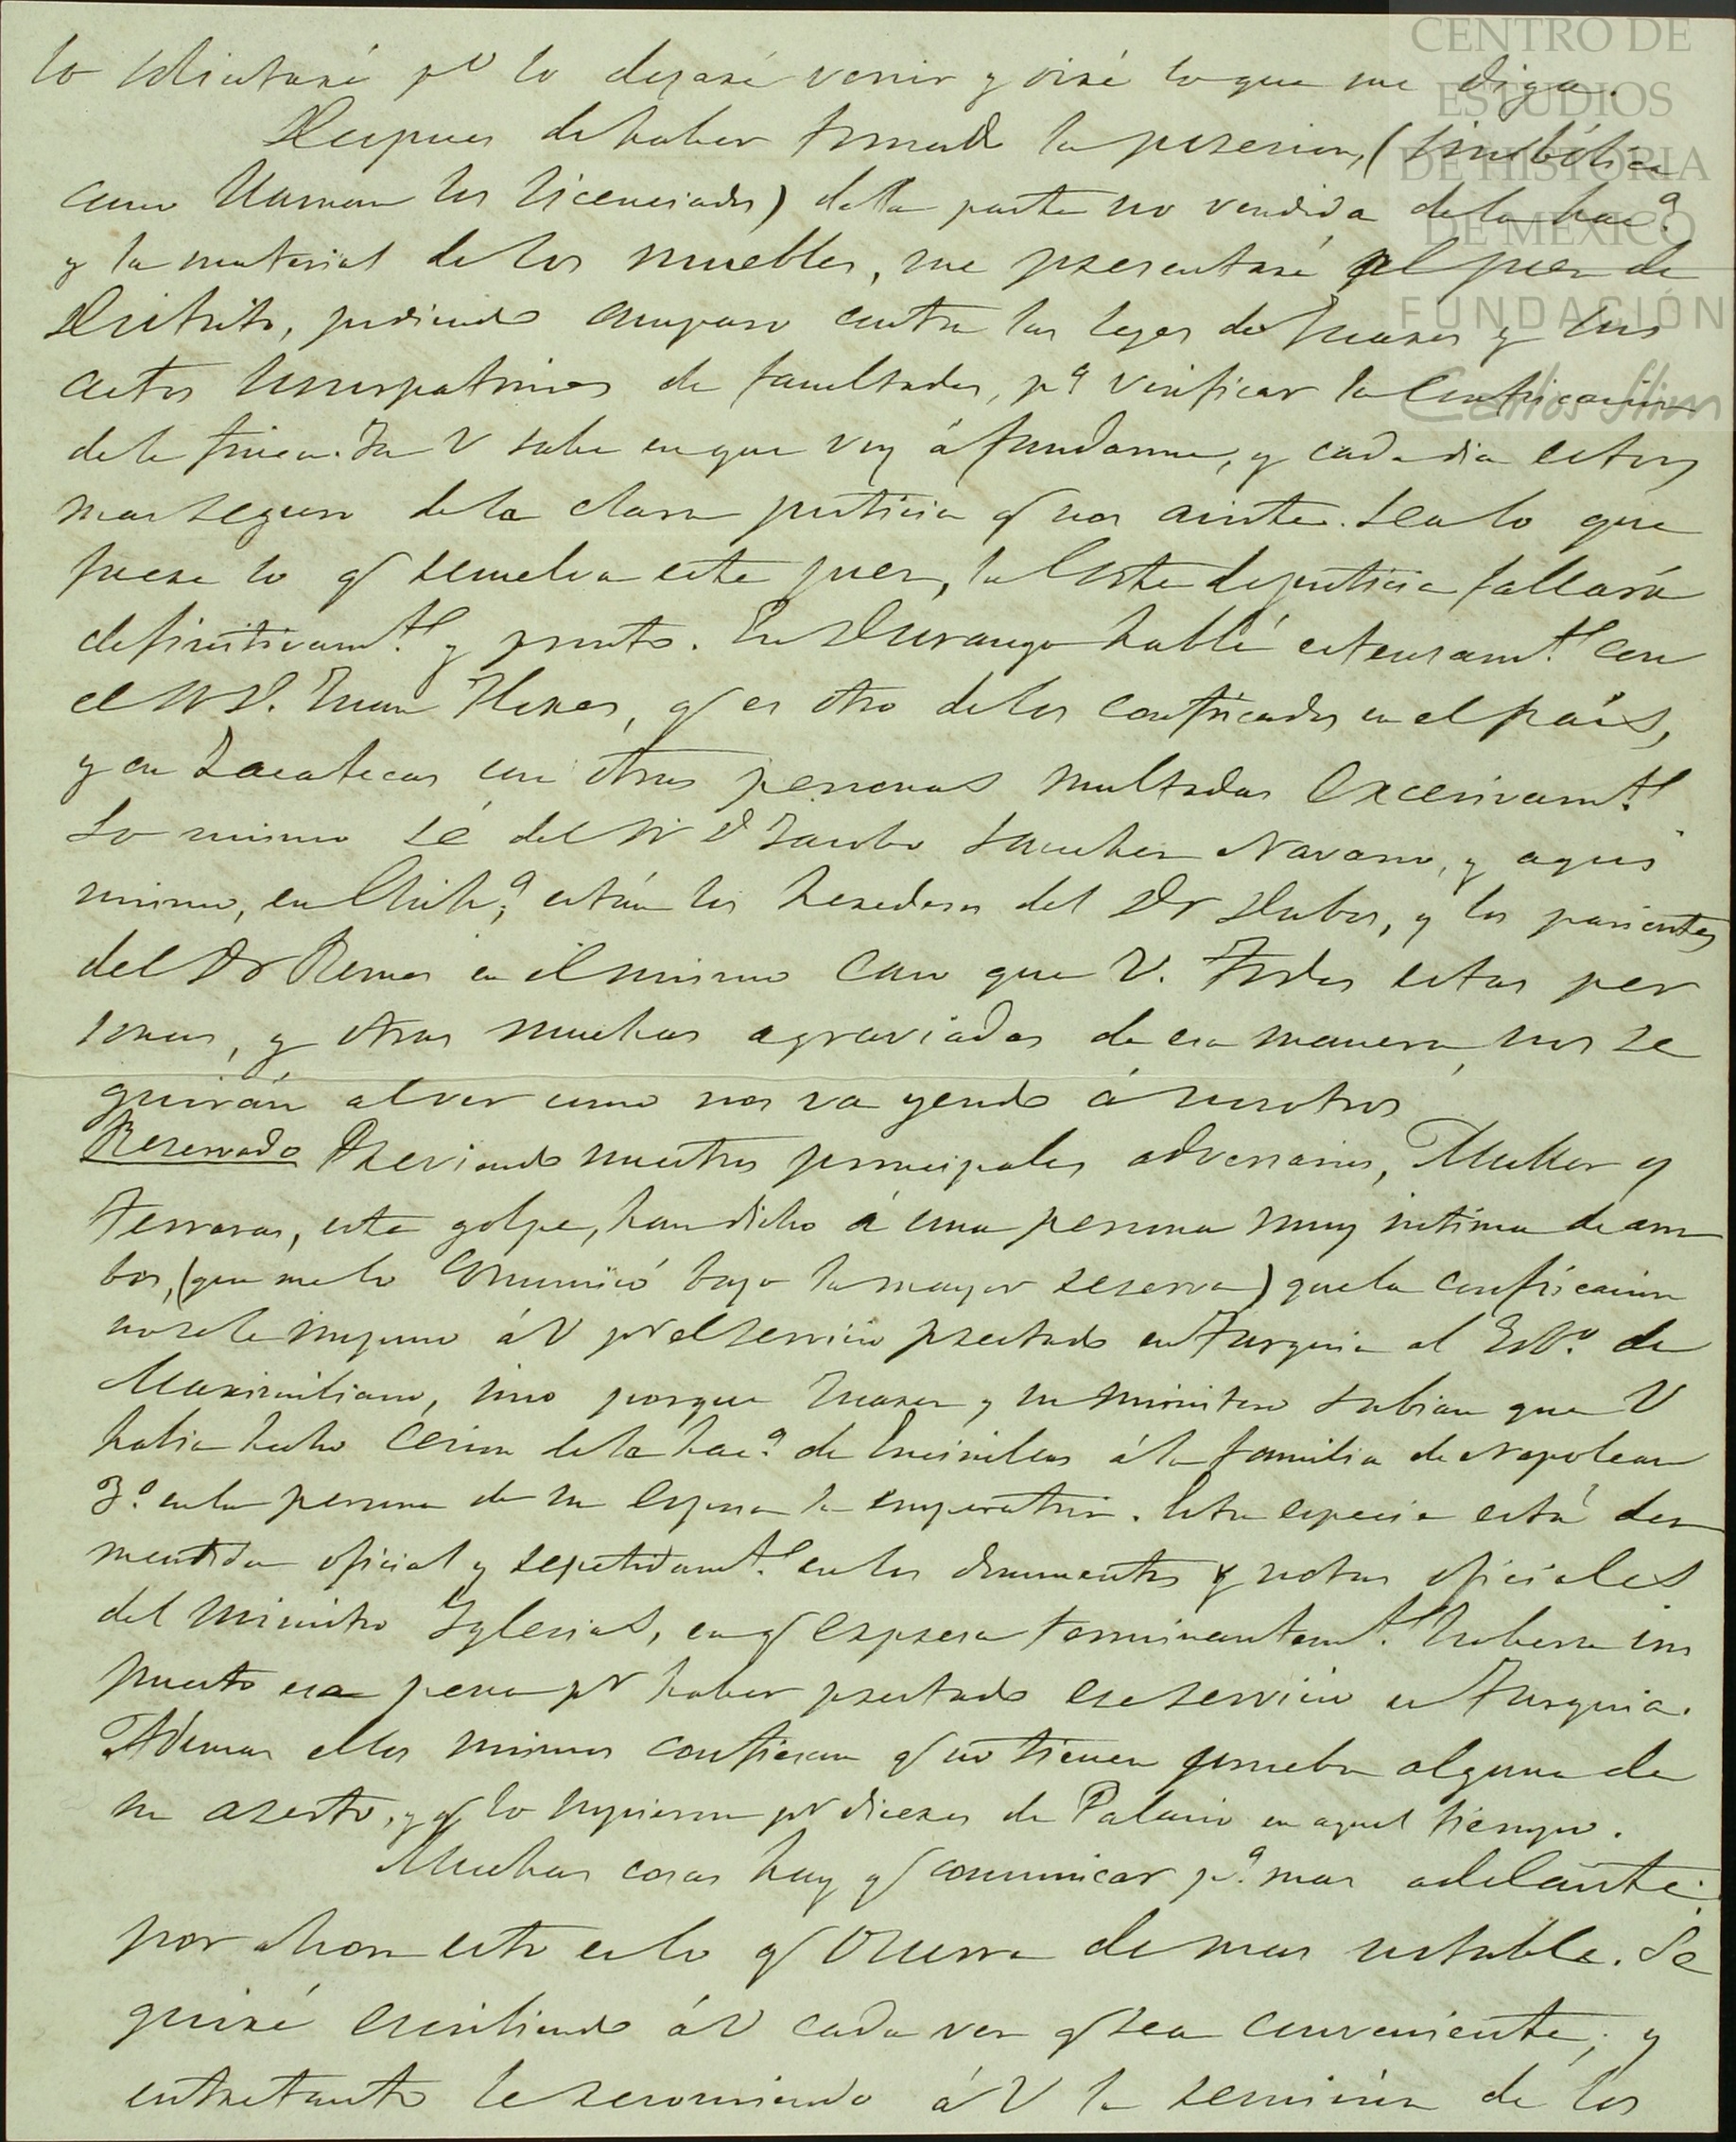 CENTRO DE
ESTUDIOS
DE HISTORIA
DE MÉXICO
FUNDACIÓN
Carlos Slim
lo solicitaré pº lo dejaré venir y oiré loque me diga.
Despues dehaber tomado la posesion, (simbólica
como llaman los licenciados) dela parte no vendida dela hac.ª
y la material de los muebles, me presentaré al juez de
Distrito, pidiendo amparo contra las leyes de Juarez y sus
actos usurpatorios de facultades, pª verificar la confiscacion
dela finca. Ya V sabe enque voy á fundarme, y cada dia estoy
mas seguro dela clara justicia q nos asiste. Sea lo que
fuere lo q resuelva este juez, la Corte dejusticia fallará
definitivamte y pronto. En Durango hablé estensamte con
el Sr D. Juan Flores, q es otro delos confiscados en el país,
y en Zacatecas con otras personas multadas excesivamte
Lo mismo sé del Sr D Jacobo Sanchez Navarro, y aqui
mismo, en Chihª, están los herederos del Dr Dubos, y los parientes
del Dr Ramos en el mismo caso que V. Todas estas per
sonas, y otras muchas agraviadas de esa manera, nos se
guirán al ver como nos va yendo á nosotros
Reservado Previendo nuestros principales adversarios, Muller y
Terrazas, este golpe, han dicho á una persona muy intima de am
bos, (que melo comunicó bajo la mayor reserva) quela confiscacion
nosele impuso á V pr el servicio prestado en Turquia al Gobº. de
Maximiliano, sino porque Juarez y su ministerio sabian que V
habia hecho cesion dela hac.ª de Encinillas á la familia de Napoleon
3º. enla persona de su esposa la emperatriz. Esta especie está des
mentida oficial y repetidamte en los documentos y notas oficiales
del Ministro Iglesias, en q espresa terminantemte haberse im
puesto esa pena pr haber prestado ese servicio en Turquia.
Ademas ellos mismos confiesan q no tienen prueba alguna de
su aserto, y q lo supieron pr dicires de Palacio en aquel tiempo.
Muchas cosas hay q comunicar pª mas adelante:
por ahora esto es lo q ocurre de mas notable. Se
guiré escribiendo á V cada vez q sea conveniente; y
entretanto le recomiendo á V la remision de los